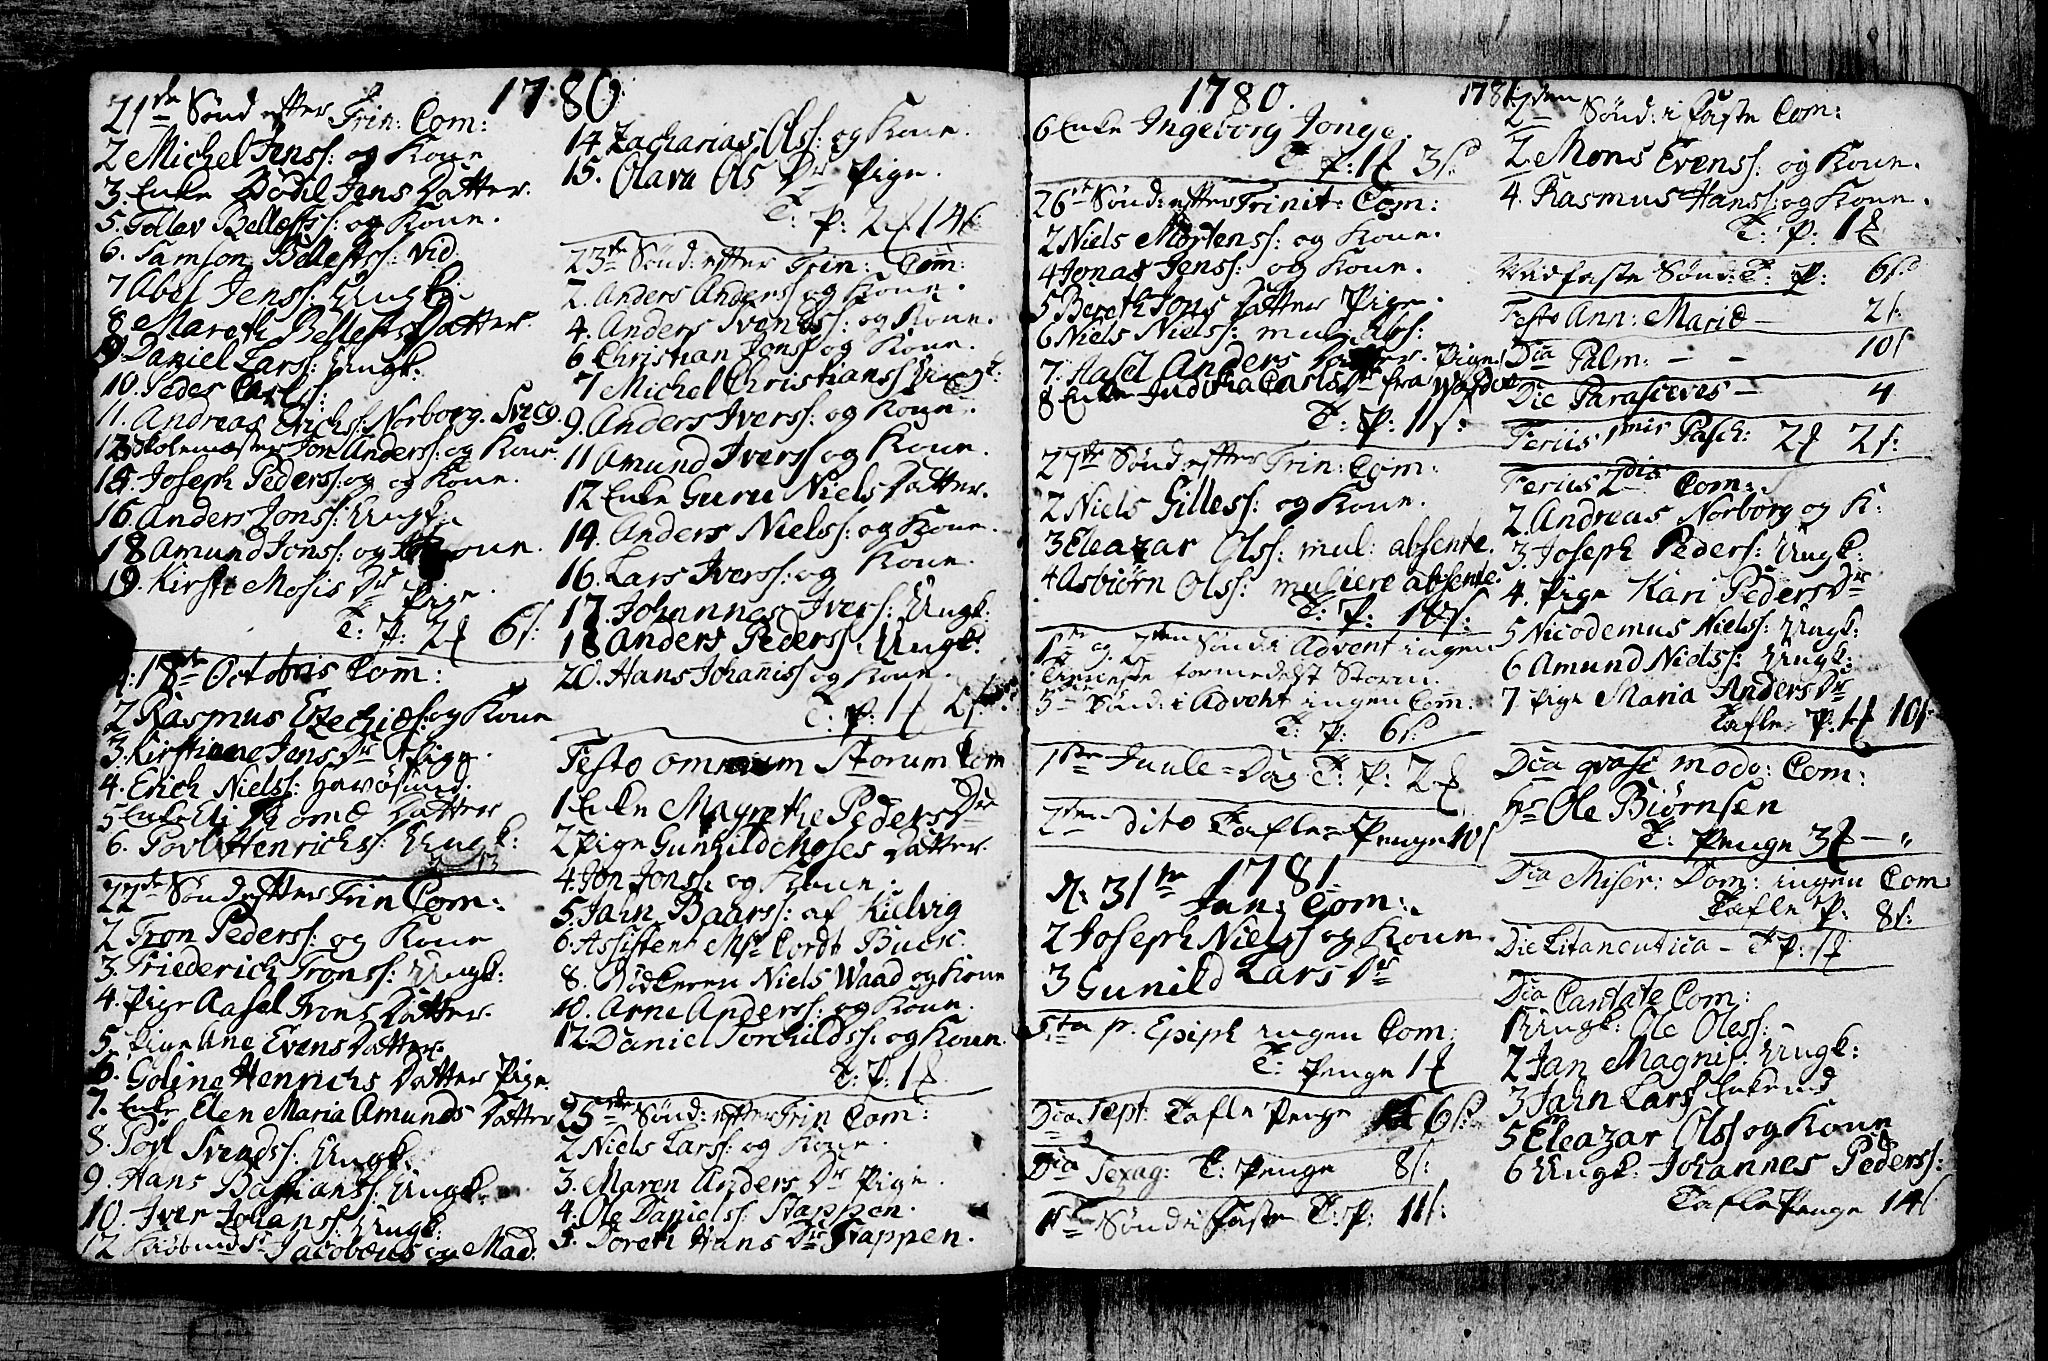 1780
21de Sønd efter Trin: Com:
2 Michel Jenss: og Kone
3. Enke Bodil Jens Datter.
5. Tollev Belless: og Kone.
6. Samson Bellefss: vid
7 Abel Jenss: Ungk:
8 Mareth Bellefs Datter.
9. Daniel Larss: Ungk:
10. Peder Carlss:
11. Andreas Erichs: Norborg. Sveco.
13 Skolemester Jon Anderss: og Kone.
15. Joseph Pederss: og Kone.
16. Anders Jonss: Ungk:
18 Amund Jonss: og Kone.
19. Kirste Mosis Dr Pige.
T: P: 2 6s:
d: 18de Octobris Com:
2 Rasmus Ezechiels: og Kone
3. Kirstiane Jens Dr Pige.
4. Erich Nielss: Havøsund.
5 Enke Eli Datter
6. Povl Henrichss: Ungk:
22de Sønd efter Trin Com:
2 Tron Pederss: og Kone
3. Friederich Tronss: Ungk:
4. Pige Aasel Trons Datter.
5. Pige Ane Evens Datter.
6. Goline Henrichs Datter Pige.
7. Enke Elen Maria Amunds Datter
8. Povl Svendss: Ungk:
9. Hans Bastianss: Ungk:
10. Iver Johanss: Ungk:
12 Kiøbmd Sr Jacobæus og Mad.
14 Zacharias Olss: og Kone.
15. Olava Ols Dr Pige.
T: P: 2 14s:
23de Sønd: efter Trin: Com:
2. Anders Anderss og Kone.
4. Anders Svends: og Kone.
6 Christian Jonss og Kone.
7 Michel Christianss Ungk:
9. Anders Iverss: og Kone.
11 Amund Iverss og Kone.
12 Enke Guru Niels Datter.
14. Anders Nielss: og Kone.
16. Lars Iverss: og Kone.
17. Johannes Ivers: Ungk:
18 Anders Pederss: Ungk:
20. Hans Johaniss og Kone.
T: P: 1
Festo omnium Storum Com
1 Enke Magrethe Peders Dr
2 Pige Gunhild Moses Datter
4. Jon Jonss: og Kone.
5. Jahn Baarss: af Kielvig
6. Assistent Msr Cordt Buck.
8. Bødkeren Niels Waad og Kone
10. Arne Anderss: og Kone.
12. Daniel Torchildss: og Kone.
T: P: 1
25de Sønd: efter Trin Com:
2 Niels Larss: og Kone.
3. Maren Anders Dr Pige.
4. Ole Daniels: Stappen.
5. Doreth Hans Dr Stappen.
1780.
6 Enke Ingeborg Jonge.
T: P: 1 3s
26de Sønd: efter Trinit: Com:
2 Niels Mortenss: og Kone.
4 Jonas Jenss: og Kone.
5 Bereth Jons Datter Pige.
6 Niels Nielss: mul: abs:
7. Aasel Anders Datter. Pige
8 Enke Juditha Carls Dr fra Wadsø
T: P: 11s:
27de Sønd efter Trin: Com:
2 Niels Gilless: og Kone.
3 Eleazar Olss: mul: absente.
4 Asbiørn Olss: muliere absente.
T: P: 10s:
1te og 2den Sønd: i Advent ingen
Tieneste formedelst Storm.
3die Sønd: i Advent ingen Com:
T: P: 6s:
1ste Juule-Dag T: P: 2
2den dito Tafle-Penge 10s
1781
d: 31te Jan: Com:
2 Joseph Nielss og Kone.
3 Gunild Lars Dr
5ta p. Epiph ingen Com:
T: Penge 1
Dca Sept: Tafle Penge 6s:
Dca Sexag: T: Penge 8s:
1te Sønd i Faste T: P: 11s:
1781
2den Sønd: i Faste Com:
2. Mons Evenss: og Kone.
4. Rasmus Hanss: og Kone.
T: P: 1
Midfaste Sønd: T: P: 6s
Festo Ann: Mariæ — 2s:
Dca Palm: — — 10s
Die Parasceves — 4
Feriis 1mis Pasch: 2 2s:
Feriis 2dis Com:
2. Andreas Norborg og K:
3. Joseph Peders: Ungk:
4. Pige Kari Peders Dr
5 Nicodemus Nielss: Ungk:
6 Amund Nielss: Ungk:
7 Pige Maria Anders Dr
Tafle P: 10s
Dca qvasi modo: Com:
Hr Ole Biørnsen
T: Penge 3 — "
Dca Miser: Dom: ingen Com
Tafle P: 8s:
Die Litaneutica — T: P: 1
Dca Cantate Com:
1 Ungk: Ole Oless:
2 Jan Magnis: Ungk:
3 Jahn Larss Enkemd
5 Eleazar Olss og Kone
6 Ungk: Johannes Pederss:
Tafle Penge 14s